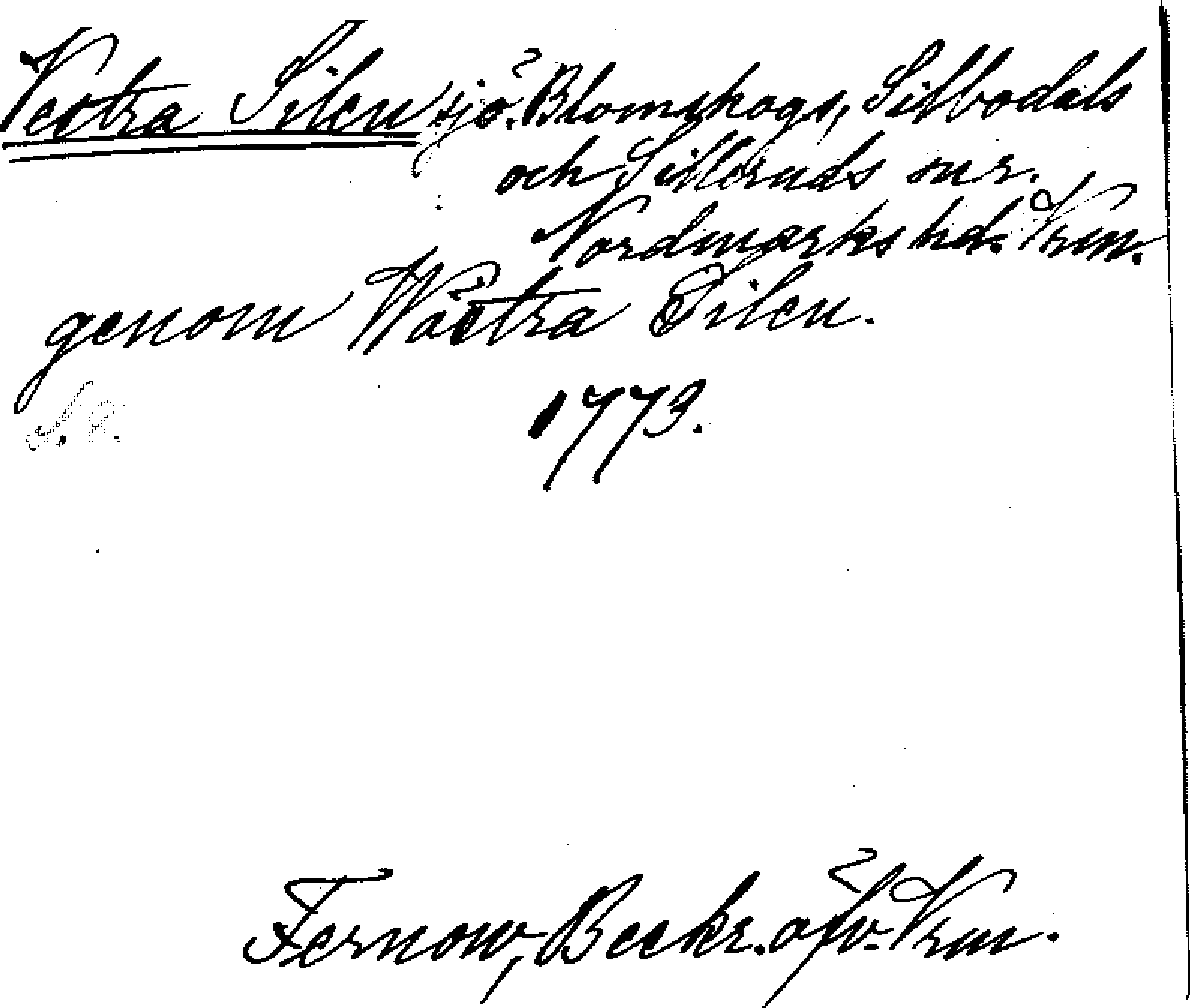 Vestra Silen sjö. Blomskogs, Silbodals
och Silleruds snr.
Nordmarks hd. Vrm.
genom Wästra Silen.
1773.
Fernow, Beskr. öfv. Vrm.